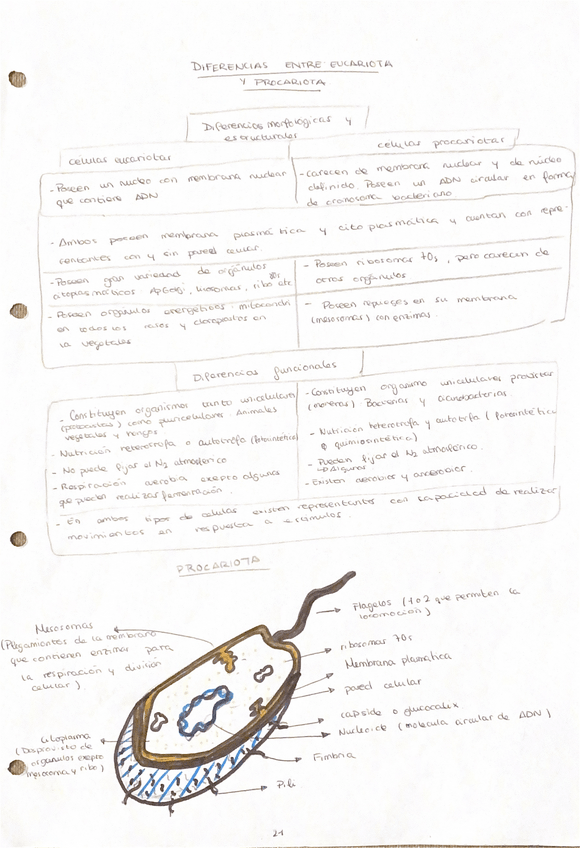 DIFERENCIAS ENTRE EUCARIOTA
Y PROCARIOTA
Diferencias morfologicas y
estructurales
celulas eucariotas
celulas procariotas
- Poseen un nucleo con membrana nuclear
que contiene ADN
- carecen de membrana nuclear y de núcleo
definido. Poseen un ADN circular en forma
de cromosoma bacteriano
- Ambos poseen membrana plasmática y citoplasmática y cuentan con repre-
sentantes con y sin pared celular.
- Poseen gran variedad de orgánulos
citoplasmáticos. ApGolgi, lisosomas, ribo etc
- Poseen ribosomas 70s, pero carecen de
otros orgánulos
- Poseen organulos energéticos: mitocondri
en todos los casos y cloroplastos en
la vegetales
- Poseen repliegues en su membrana
(mesosomas) con enzimas.
Diferencias funcionales
- Constituyen organismos tanto unicelulares
(protoctistas) como pluricelulares. Animales
vegetales y hongos
- Nutrición heterotrofa o autotrofa (fotosintética)
- No puede fijar el N2 atmosférico
- Respiración aerobia exepto algunos
que pueden realizar fermentación.
- Constituyen organismo unicelulares procariotas
(moneras) Bacterias y cianobacterias.
- Nutrición heterotrofa y autotrofa (fotosintética
o quimiosintética)
- Pueden fijar el N2 atmosférico.
→ Algunas
- Existen aerobios y anaerobios.
- En ambos tipos de celulas existen representantes con capacidad de realizar
movimientos en respuesta a estímulos.
PROCARIOTA
Flagelos (1 o 2 que permiten la
locomoción)
Mesosomas
(Plegamientos de la membrana
que contienen enzimas para
la respiración y división
celular)
ribosomas 70s
Membrana plasmática
pared celular
capside o glucocalix
Nucleoide (molécula circular de ADN)
Citoplasma
(Desprovisto de
organulos exepro
mesosoma y ribo)
Fimbria
Pili
21